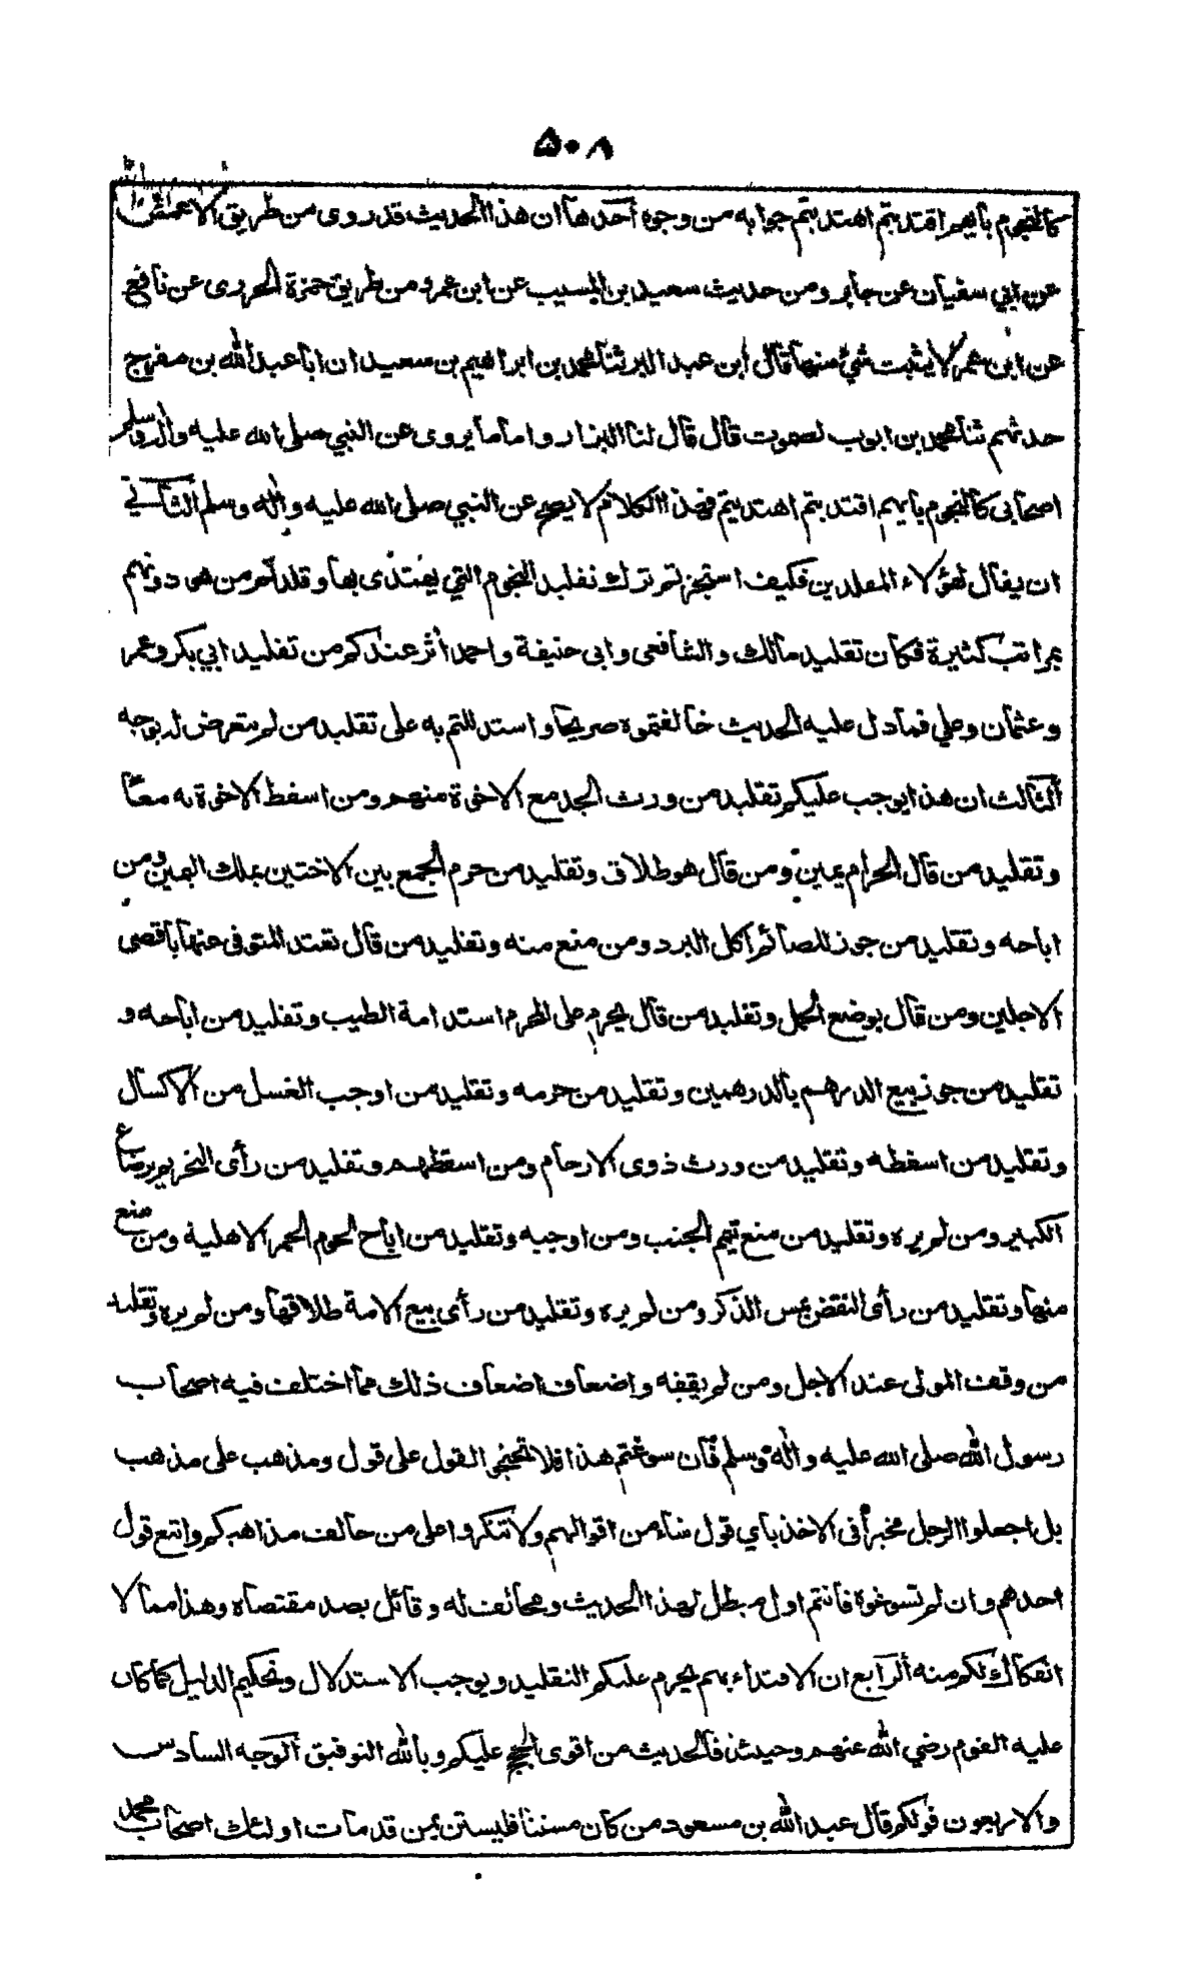 ۵۰۸
كالنجوم بأيهم اقتديتم اهتديتم جوابه من وجوه أحدها ان هذا الحديث قد روى من طريق الاعمش
عن ابي سفيان عن جابر ومن حديث سعيد بن المسيب عن ابن عمر ومن طريق حمزة الجزرى عن نافع
عن ابن عمر لا يثبت شئ منها قال ابن عبد البر ثنا محمد بن ابراهيم بن سعيد ان ابا عبد الله بن مفرج
حدثهم ثنا محمد بن ايوب لصموت قال قال لنا البزار واما ما يروى عن النبي صلى الله عليه واله وسلم
اصحابى كالنجوم بأيهم اقتديتم اهتديتم فهذا الكلام لا يصح عن النبي صلى الله عليه واله وسلم الثاني
ان يقال لهؤلاء المقلدين فكيف استجزتم ترك تقليد النجوم التي يهتدى بها وقلدتم من هو دونهم
بمراتب كثيرة فكان تقليد مالك والشافعى وابى حنيفة واحمد أثر عندكم من تقليد ابي بكر وعمر
وعثمان وعلي فما دل عليه الحديث خالفتموه صريحا واستدللتم به على تقليد من لم يتعرض له بوجه
الثالث ان هذا يوجب عليكم تقليد من ورث الجد مع الاخوة منهم ومن اسقط الاخوة به معا
وتقليد من قال الحرام يمين ومن قال هو طلاق وتقليد من حرم الجمع بين الاختين بملك اليمين ومن
اباحه وتقليد من جوز للصائم اكل البرد ومن منع منه وتقليد من قال تعتد المتوفى عنها باقصى
الاجلين ومن قال بوضع الحمل وتقليد من قال يحرم على المحرم استدامة الطيب وتقليد من اباحه و
تقليد من جوز بيع الدرهم بالدرهمين وتقليد من حرمه وتقليد من اوجب الغسل من الاكسال
وتقليد من اسقطه وتقليد من ورث ذوى الارحام ومن اسقطهم وتقليد من رأى التحريم برضاع
الكبير ومن لم يره وتقليد من منع تيمم الجنب ومن اوجبه وتقليد من اباح لحوم الحمر الاهلية ومن منع
منها وتقليد من رأى النقض بمس الذكر ومن لم يره وتقليد من رأى بيع الامة طلاقها ومن لم يره وتقليد
من وقف المولى عند الاجل ومن لم يقفه واضعاف اضعاف ذلك مما اختلف فيه اصحاب
رسول الله صلى الله عليه واله وسلم فان سوغتم هذا فلا تحتجوا القول على قول ومذهب على مذهب
بل اجعلوا الرجل مخيرا فى الاخذ بأي قول شاء من اقوالهم ولا تنكروا على من خالف مذاهبكم واتبع قول
احدهم وان لم تسوغوه فانتم اول مبطل لهذا الحديث ومخالف له وقائل بضد مقتضاه وهذا مما لا
انفكاك لكم منه الرابع ان الاقتداء بهم يحرم عليكم التقليد ويوجب الاستدلال وتحكيم الدليل كما كان
عليه القوم رضي الله عنهم وحينئذ فالحديث من اقوى الحجج عليكم وبالله التوفيق الوجه السادس
والاربعون قولكم قال عبد الله بن مسعود من كان مستنا فليستن بمن قد مات اولئك اصحاب محمد